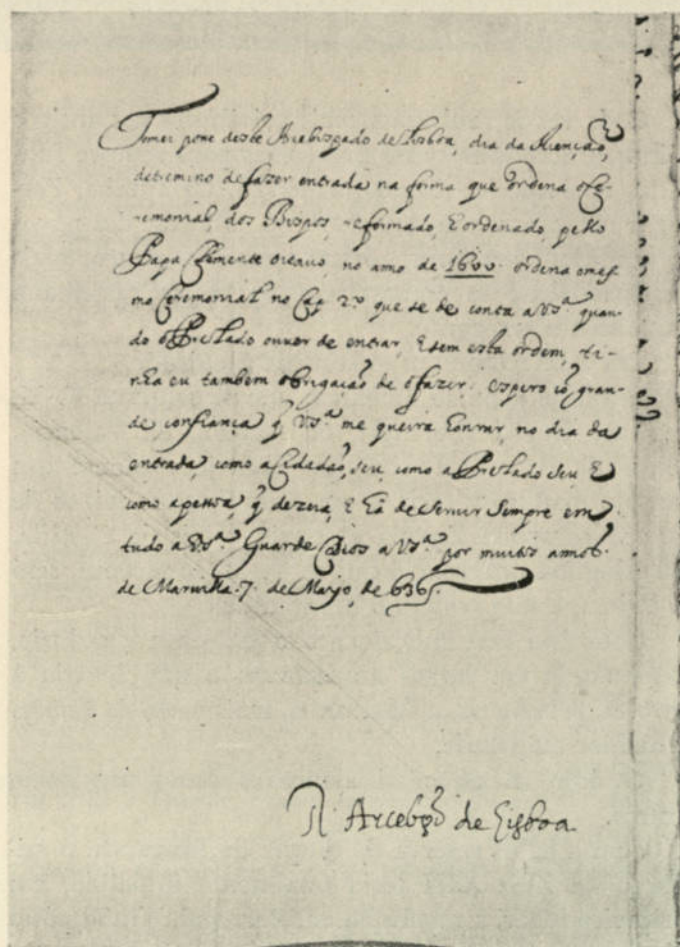 Tomei posse deste Arcebispado de Lixboa, dia da Acenção,
determino de fazer entrada na forma que ordena o Ce-
remonial dos Bispos, reformado, E ordenado, pello
Papa Clemente oitauo, no anno de 1600. ordena o mes-
mo Ceremonial no Cap. 2º que se de conta a VSª quan-
do o Prelado ouuer de entrar, E sem esta ordem, ti-
nha eu tambem obrigação de o fazer. espero cõ gran-
de confiança q̃ VSª me queira honrar, no dia da
entrada, como a Cidadão seu, como a Prelado seu E
como a pessoa q̃ dezeia, E ha de seruir sempre em
tudo a VSª. Guarde Deos a VSª por muitos annos.
de Maruilla. 7. de Mayo, de 636.
R Arcebpõ de Lisboa.